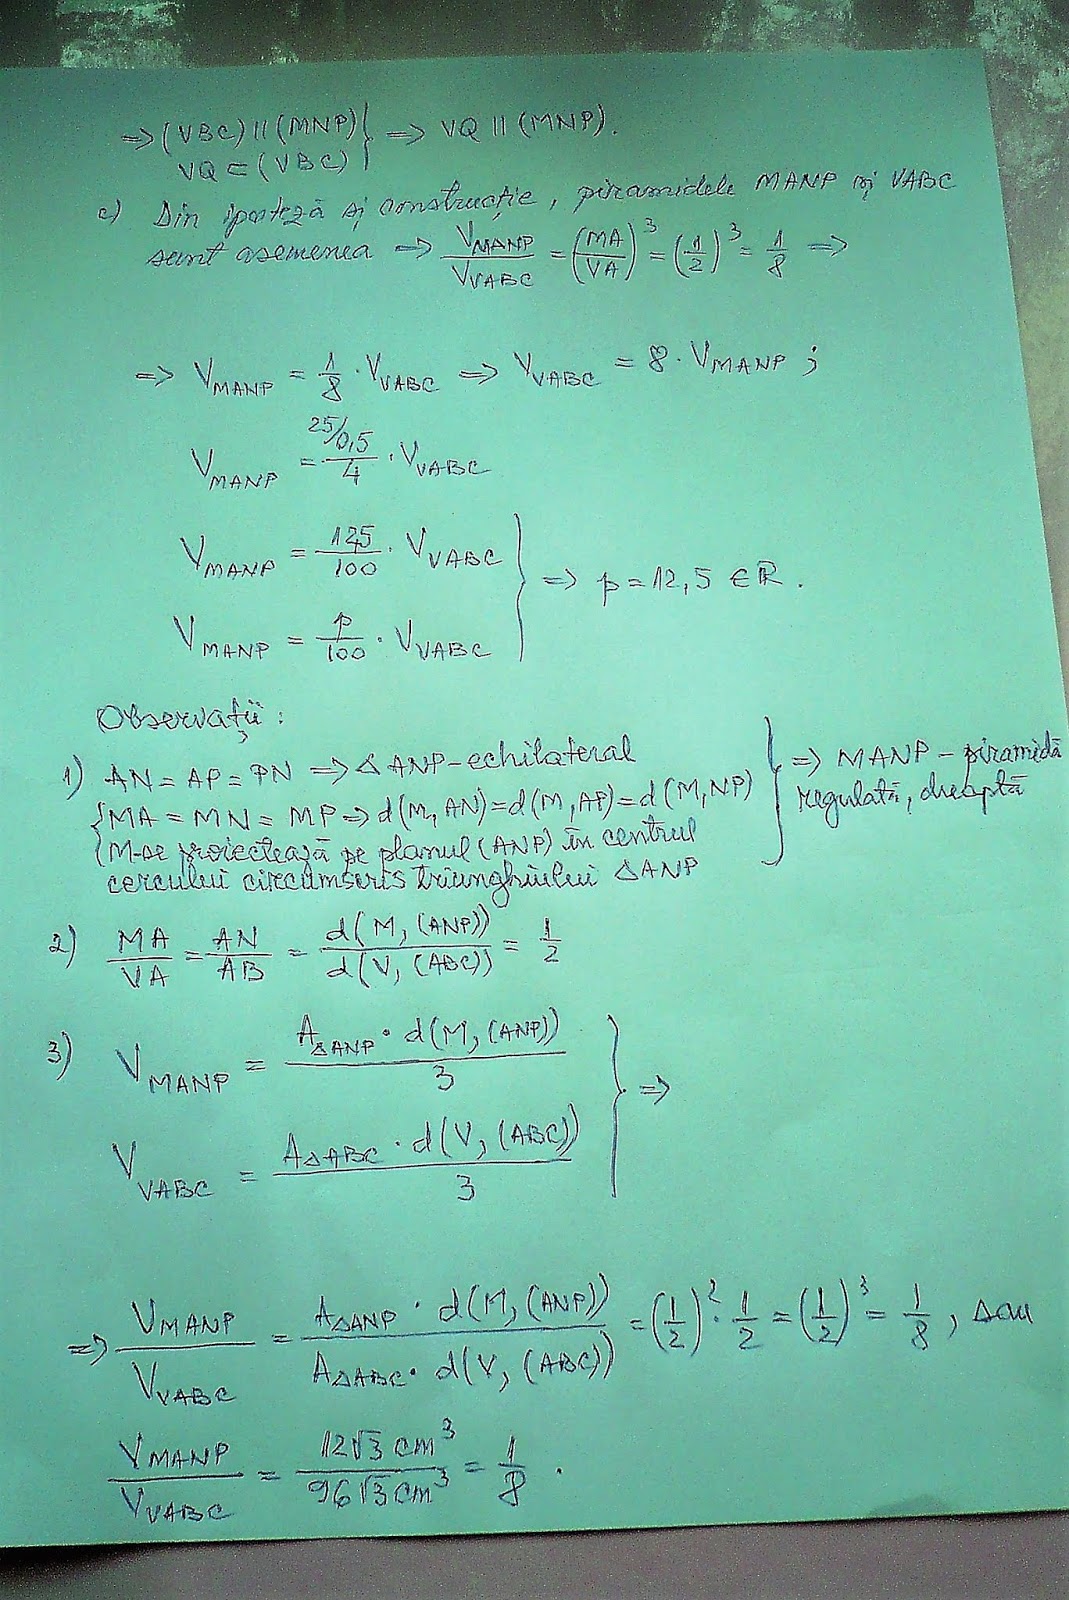 ⇒ (VBC) || (MNP) } ⇒ VQ || (MNP).
VQ ⊂ (VBC)
c) Din ipoteză și construcție, piramidele MANP și VABC
sunt asemenea ⇒ V_MANP / V_VABC = (MA/VA)^3 = (1/2)^3 = 1/8 ⇒
⇒ V_MANP = 1/8 · V_VABC ⇒ V_VABC = 8 · V_MANP ;
V_MANP = 25/0,5 / 4 · V_VABC
V_MANP = 12,5/100 · V_VABC } ⇒ p = 12,5 ∈ R.
V_MANP = p/100 · V_VABC
Observații :
1) AN = AP = PN ⇒ Δ ANP - echilateral } ⇒ MANP - piramidă
{ MA = MN = MP ⇒ d(M, AN) = d(M, AP) = d(M, NP) regulată, dreaptă
M-se proiectează pe planul (ANP) în centrul
cercului circumscris triunghiului ΔANP
2) MA/VA = AN/AB = d(M, (ANP)) / d(V, (ABC)) = 1/2
3) V_MANP = A_ΔANP · d(M, (ANP)) / 3 } ⇒
V_VABC = A_ΔABC · d(V, (ABC)) / 3
⇒ V_MANP / V_VABC = A_ΔANP · d(M, (ANP)) / A_ΔABC · d(V, (ABC)) = (1/2)^2 · 1/2 = (1/2)^3 = 1/8 , sau
V_MANP / V_VABC = 12√3 cm^3 / 96√3 cm^3 = 1/8 .